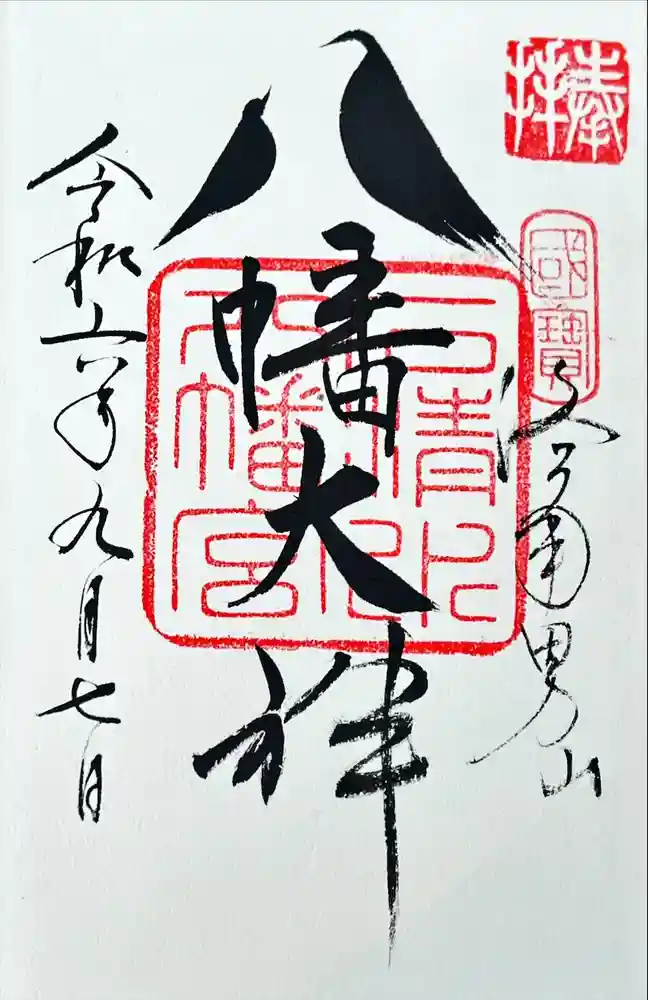 奉拝
國寶
洛南男山
八幡大神
石清水
八幡宮
令和六年九月七日